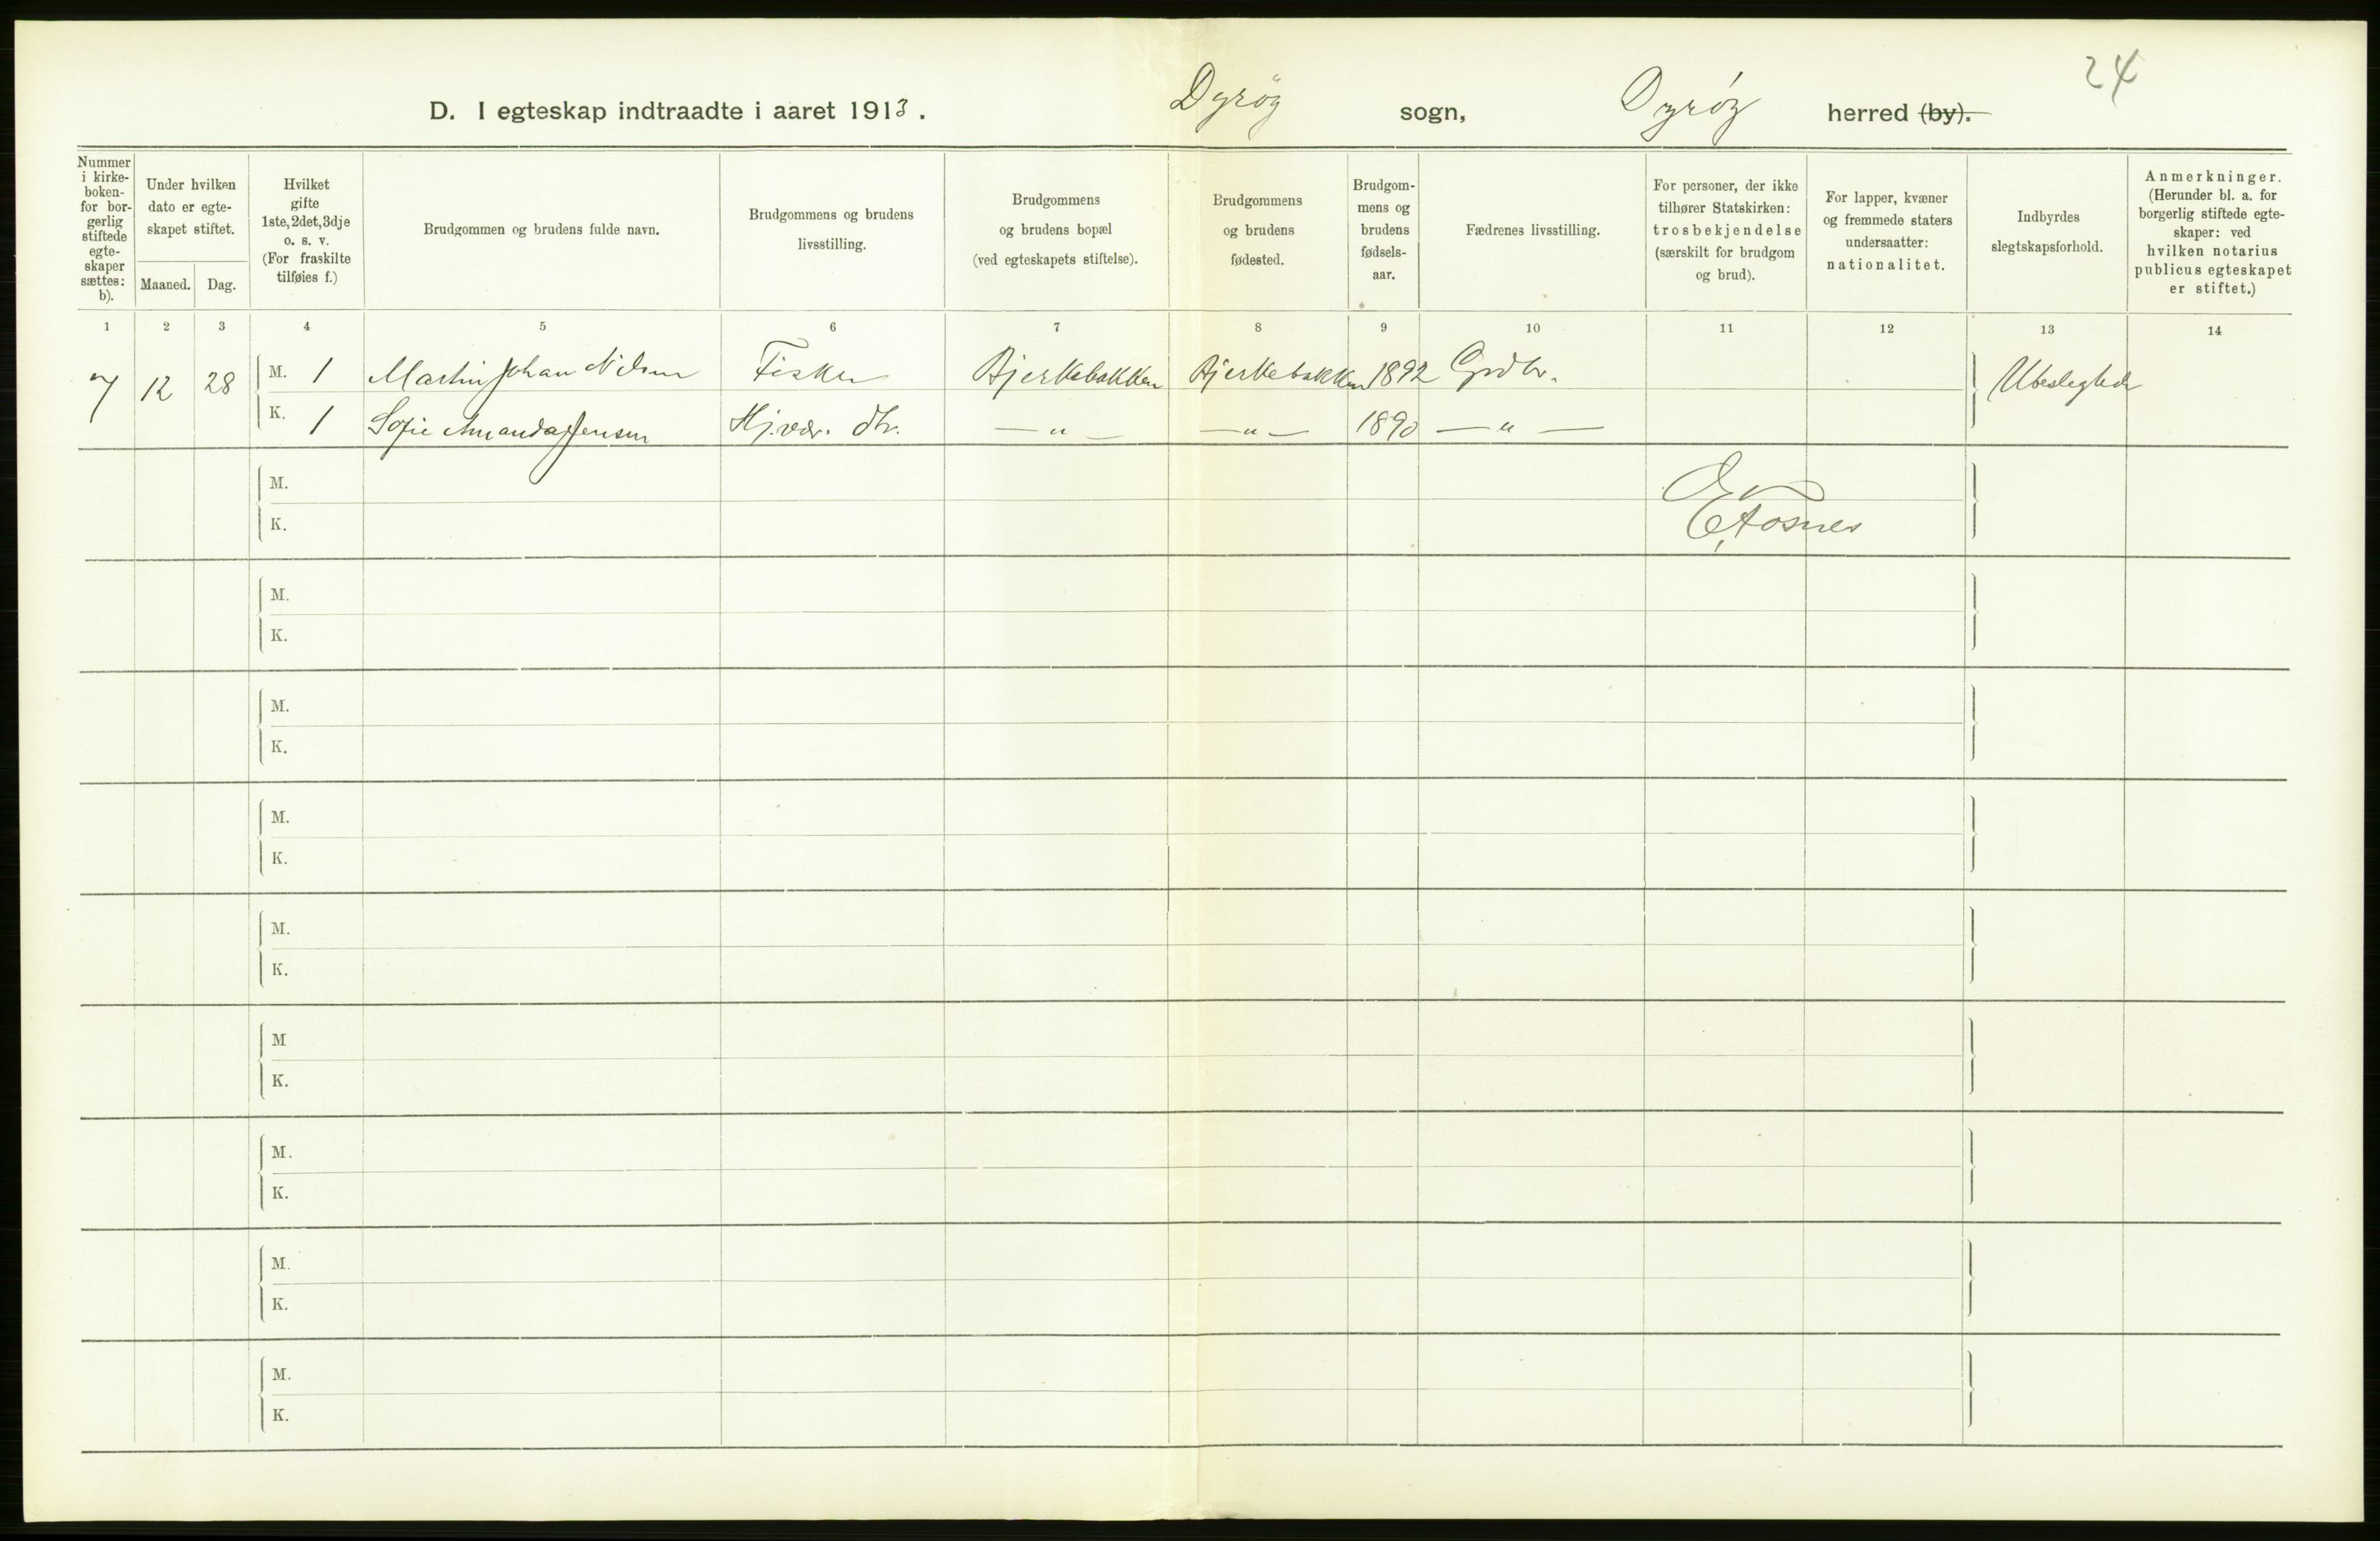 24
D. I egteskap indtraadte i aaret 1913. Dyröy sogn, Dyröy herred (by).
Nummer i kirkeboken- for borgerlig stiftede egteskaper sættes: b).
Under hvilken dato er egteskapet stiftet.
Maaned. Dag.
Hvilket gifte 1ste, 2det, 3dje o. s. v. (For fraskilte tilføies f.)
Brudgommen og brudens fulde navn.
Brudgommens og brudens livsstilling.
Brudgommens og brudens bopæl (ved egteskapets stiftelse).
Brudgommens og brudens fødested.
Brudgommens og brudens fødselsaar.
Fædrenes livsstilling.
For personer, der ikke tilhører Statskirken: trosbekjendelse (særskilt for brudgom og brud).
For lapper, kvæner og fremmede staters undersaatter: nationalitet.
Indbyrdes slegtskapsforhold.
Anmerkninger. (Herunder bl. a. for borgerlig stiftede egteskaper: ved hvilken notarius publicus egteskapet er stiftet.)
1 2 3 4 5 6 7 8 9 10 11 12 13 14
7 12 28 M. 1 Martin Johan Nilsen Fisker Bjerkebakken Bjerkebakken 1892 Grdbr. Ubeslegtede
K. 1 Sofie Amanda Jensen Hj.vær. dtr. — " — — " — 1890 — " —
M.
K. Fosnes
M.
K.
M.
K.
M.
K.
M.
K.
M
K.
M.
K.
M.
K.
M.
K.